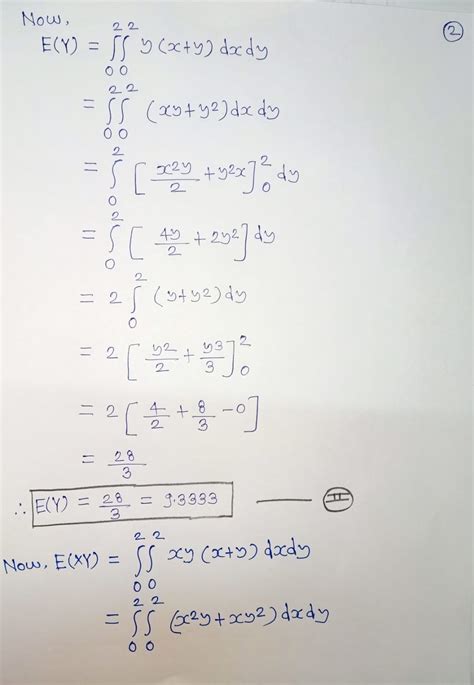 Now,
②
E(Y) = ∫₀²∫₀² y(x+y) dx dy
= ∫₀²∫₀² (xy+y²) dx dy
= ∫₀² [x²y/2 + y²x]₀² dy
= ∫₀² [4y/2 + 2y²] dy
= 2 ∫₀² (y+y²) dy
= 2 [y²/2 + y³/3]₀²
= 2 [4/2 + 8/3 - 0]
= 28/3
∴ E(Y) = 28/3 = 9.3333 —— Ⅱ
Now, E(XY) = ∫₀²∫₀² xy (x+y) dx dy
= ∫₀²∫₀² (x²y+xy²) dx dy